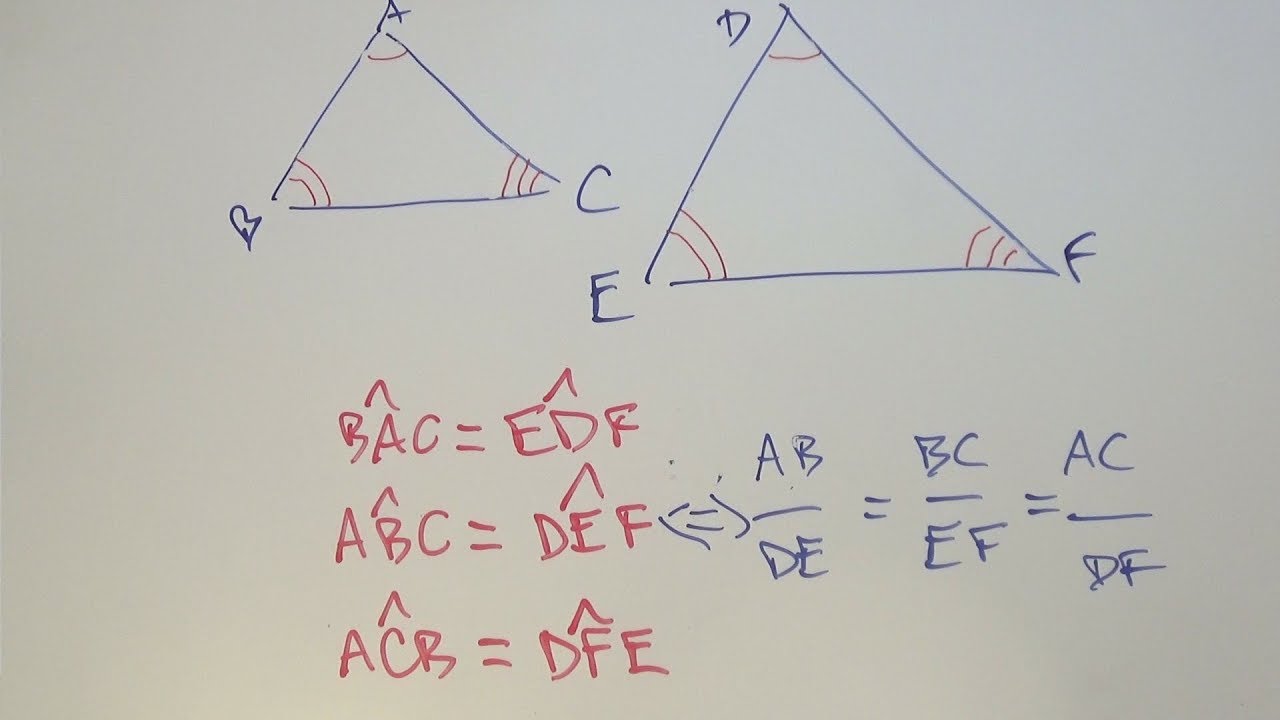 A
D
B
C
E
F
BÂC = ED̂F
AB̂C = DÊF <=> AB/DE = BC/EF = AC/DF
AĈB = DF̂E